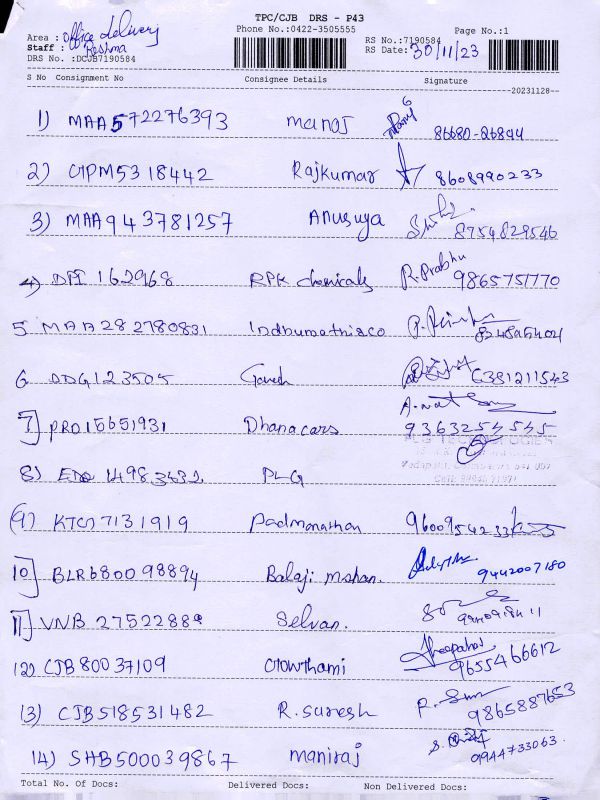 TPC/CJB DRS - P43
Phone No.:0422-3505555 Page No.:1
Area : office delivery
Staff : Reshma
DRS No. :DCJB7190584
RS No.:7190584
RS Date: 30/11/23
S No Consignment No Consignee Details Signature
20231128
1) MAA572276393 manoj 86680-26844
2) GPM5318442 Rajkumar 8608990233
3) MAA943781257 Anusuya 8754829546
4) DPI 162968 RPK chemicals R.Prabhu 9865751770
5 MAA282780831 Indhumathi&co
6 DDG123505 Ganesh 6381211543
7) PRO15651931 Dhanacars 9363254545
PLG TECHNOLOGIES
8) PLG
9) 7131919 Padmanathan 9600954233
10) BLR680098894 Balaji mohan. 9442007180
11) VNB 27522889 Selvan.
12) CJB80037109 Gowthami 9655466612
13) CJB518531482 R.suresh 9865887653
14) SHB500039867 maniraj 9944733063.
Total No. Of Docs: Delivered Docs: Non Delivered Docs: